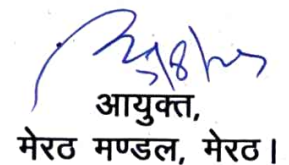 आयुक्त,
मेरठ मण्डल, मेरठ।